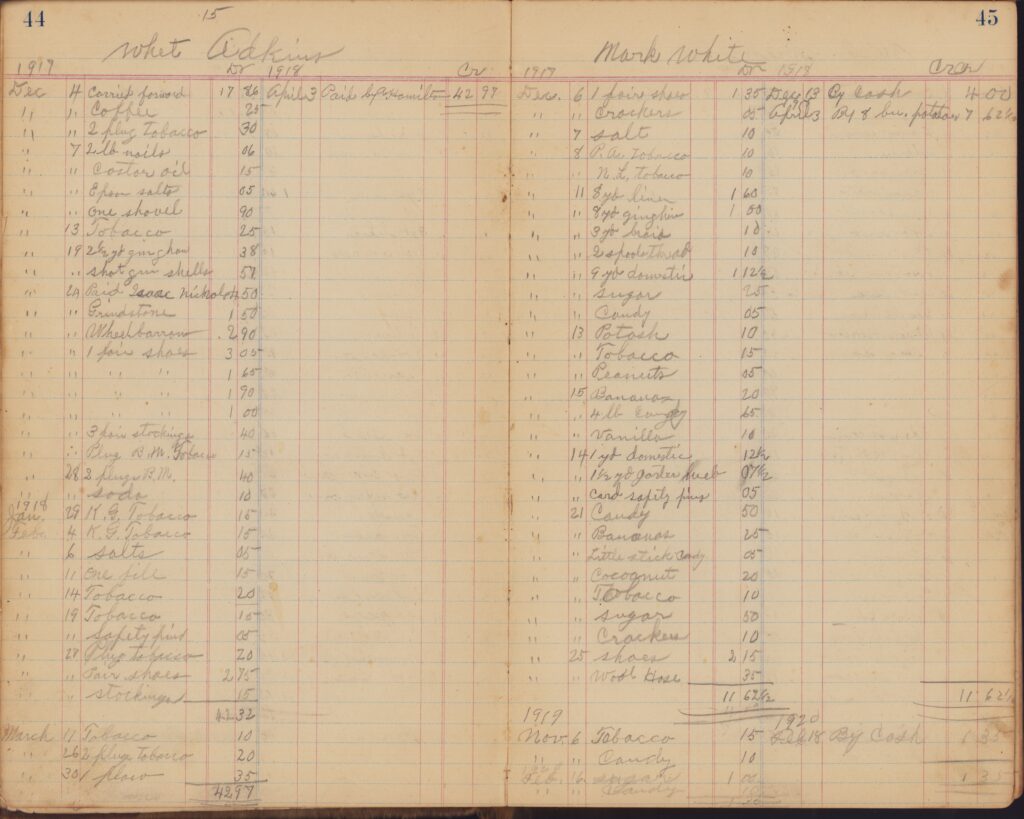 44
15
Whet Adkins
1917 Dr 1918 Cr
Dec 4 Carried forward 17 86 April 3 Paid 42 97
" " Coffee 25
" " 2 plug tobacco 30
" 7 2 lb nails 06
" " Castor oil 15
" " Epson salts 05
" " One shovel 90
" 13 Tobacco 25
" 19 2½ yd gingham 38
" " shot gun shells
" 24 Paid Isaac 50
" " Grindstone 1 50
" " Wheelbarrow 2 90
" " 1 pair shoes 3 05
" " " " " 1 65
" " " " " 1 90
" " " " " 1 00
" " 3 pair stockings 40
" " Plug B.M. Tobacco 15
" 28 2 plugs B.M. 40
" " soda 10
1918
Jan. 29 K. G. Tobacco 15
Feb. 4 K. G. Tobacco 15
" 6 salts 05
" 11 One file 15
" 14 Tobacco 20
" 19 Tobacco 15
" " Safety pins 05
" 27 Plug tobacco 20
" " Pair shoes 2 75
" " stockings 15
42 32
March 11 Tobacco 10
" 26 2 plugs tobacco 20
" 30 1 plow 35
42 97
45
Mark White
1917 Dr 1918 Cr
Dec. 6 1 pair shoes 1 35 Dec 13 By Cash 4 00
" " Crackers 05 April 3 By 8 bu. potatoes 7 62½
" 7 salt 10
" 8 P. A. Tobacco 10
" " N. L. tobacco 10
" 11 8 yd linen 1 60
" " 8 yd gingham 1 00
" " 3 yd braid 10
" " 2 spools thread 10
" " 9 yd domestic 1 12½
" " sugar 25
" " Candy 05
" 13 Potash 10
" " Tobacco 15
" " Peanuts 05
" 15 Bananas 20
" " 4 lb Candy 65
" " Vanilla 10
" 14 1 yd domestic 12½
" " 1½ yd garter 07½
" " Card safety pins 05
" 21 Candy 50
" " Bananas 25
" " Little stick candy 05
" " Cocoanut 20
" " Tobacco 10
" " sugar 50
" " Crackers 10
" 25 shoes 2 15
" " Wool Hose 35
11 62½ 11 62½
1919 1920
Nov. 6 Tobacco 15 Feb 18 By Cash 1 35
" " Candy 10
Feb. 16 sugar 1 00 1 35
" " Candy 10
1 35